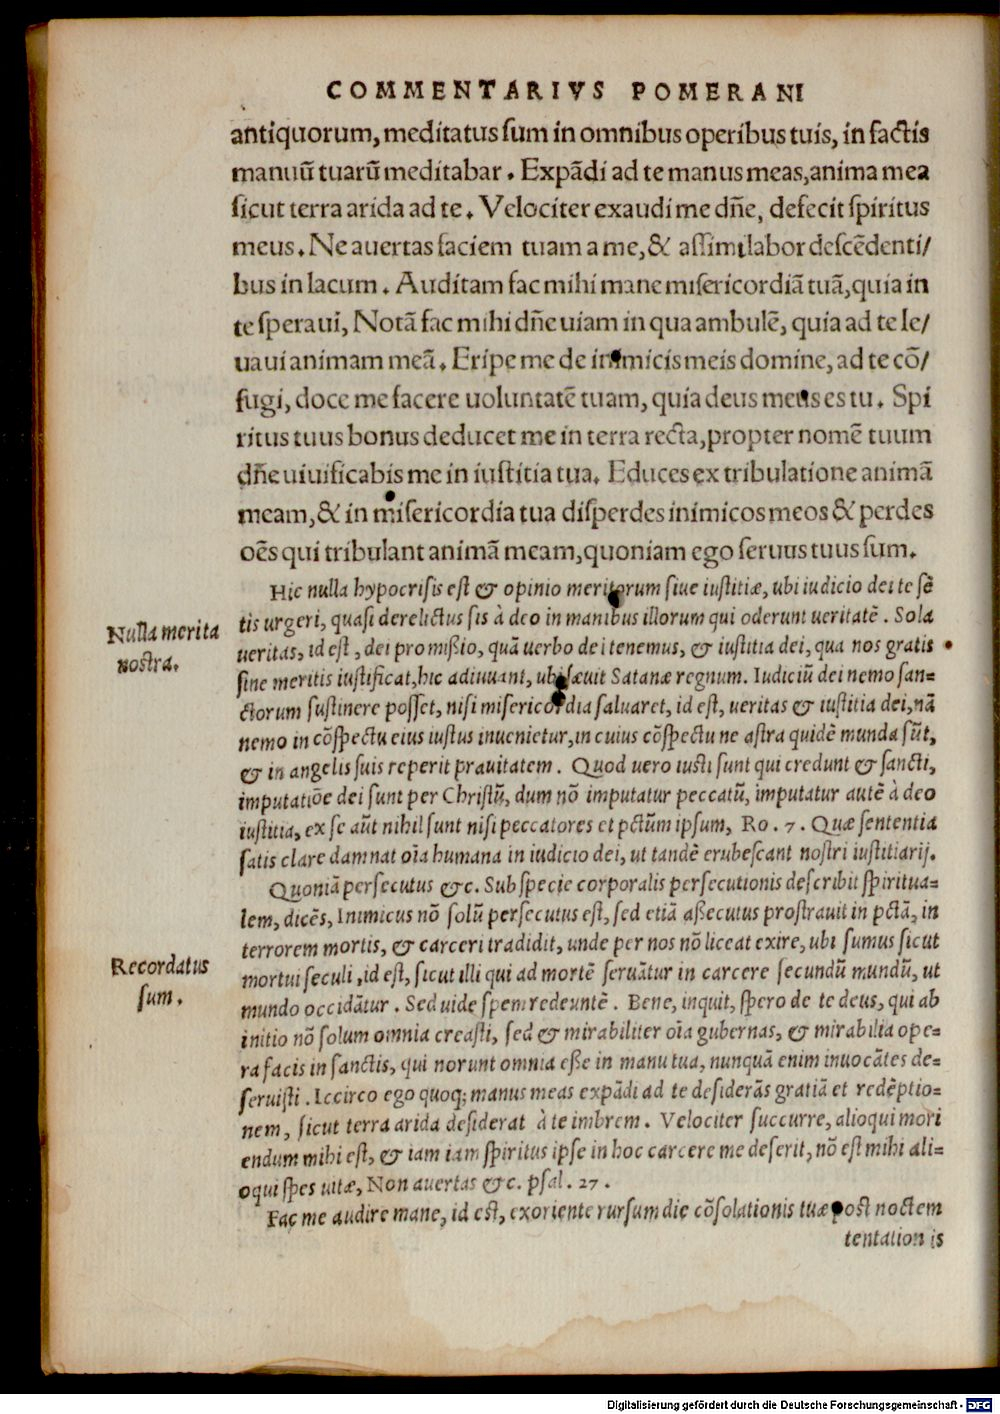 COMMENTARIVS POMERANI
antiquorum, meditatus sum in omnibus operibus tuis, in factis
manuũ tuarũ meditabar. Expãdi ad te manus meas, anima mea
sicut terra arida ad te. Velociter exaudi me dñe, defecit spiritus
meus. Ne auertas faciem tuam a me, & assimilabor descẽdenti/
bus in lacum. Auditam fac mihi mane misericordiã tuã, quia in
te speraui, Notã fac mihi dñe uiam in qua ambulẽ, quia ad te le/
uaui animam meã. Eripe me de inimicis meis domine, ad te cõ/
fugi, doce me facere uoluntatẽ tuam, quia deus meus es tu. Spi
ritus tuus bonus deducet me in terra recta, propter nomẽ tuum
dñe uiuificabis me in iustitia tua. Educes ex tribulatione animã
meam, & in misericordia tua disperdes inimicos meos & perdes
oẽs qui tribulant animã meam, quoniam ego seruus tuus sum.
Hic nulla hypocrisis est & opinio meritorum siue iustitiæ, ubi iudicio dei te sẽ
tis urgeri, quasi derelictus sis à deo in manibus illorum qui oderunt ueritatẽ. Sola
Nulla merita
nostra.
ueritas, id est, dei promißio, quã uerbo dei tenemus, & iustitia dei, qua nos gratis
sine meritis iustificat, hic adiuuant, ubi sæuit Satanæ regnum. Iudiciũ dei nemo san=
ctorum sustinere posset, nisi misericordia saluaret, id est, ueritas & iustitia dei, nã
nemo in cõspectu eius iustus inuenietur, in cuius cõspectu ne astra quidẽ munda sũt,
& in angelis suis reperit prauitatem. Quod uero iusti sunt qui credunt & sancti,
imputatiõe dei sunt per Christũ, dum nõ imputatur peccatũ, imputatur autẽ à deo
iustitia, ex se aũt nihil sunt nisi peccatores et pctũm ipsum, Ro. 7. Quæ sententia
satis clare damnat oĩa humana in iudicio dei, ut tandẽ erubescant nostri iustitiarij.
Quoniã persecutus &c. Sub specie corporalis persecutionis describit spiritua=
lem, dicẽs, Inimicus nõ solũ persecutus est, sed etiã aßecutus prostrauit in pctã, in
terrorem mortis, & carceri tradidit, unde per nos nõ liceat exire, ubi sumus sicut
Recordatus
sum.
mortui seculi, id est, sicut illi qui ad mortẽ seruãtur in carcere secundũ mundũ, ut
mundo occidãtur. Sed uide spem redeuntẽ. Bene, inquit, spero de te deus, qui ab
initio nõ solum omnia creasti, sed & mirabiliter oĩa gubernas, & mirabilia ope=
ra facis in sanctis, qui norunt omnia eße in manu tua, nunquã enim inuocãtes de=
seruisti. Iccirco ego quoq; manus meas expãdi ad te desiderãs gratiã et redẽptio=
nem, sicut terra arida desiderat à te imbrem. Velociter succurre, alioqui mori
endum mihi est, & iam iam spiritus ipse in hoc carcere me deserit, nõ est mihi ali=
oqui spes uitæ, Non auertas &c. psal. 27.
Fac me audire mane, id est, exoriente rursum die cõsolationis tuæ post noctem
tentationis
Digitalisierung gefördert durch die Deutsche Forschungsgemeinschaft - DFG